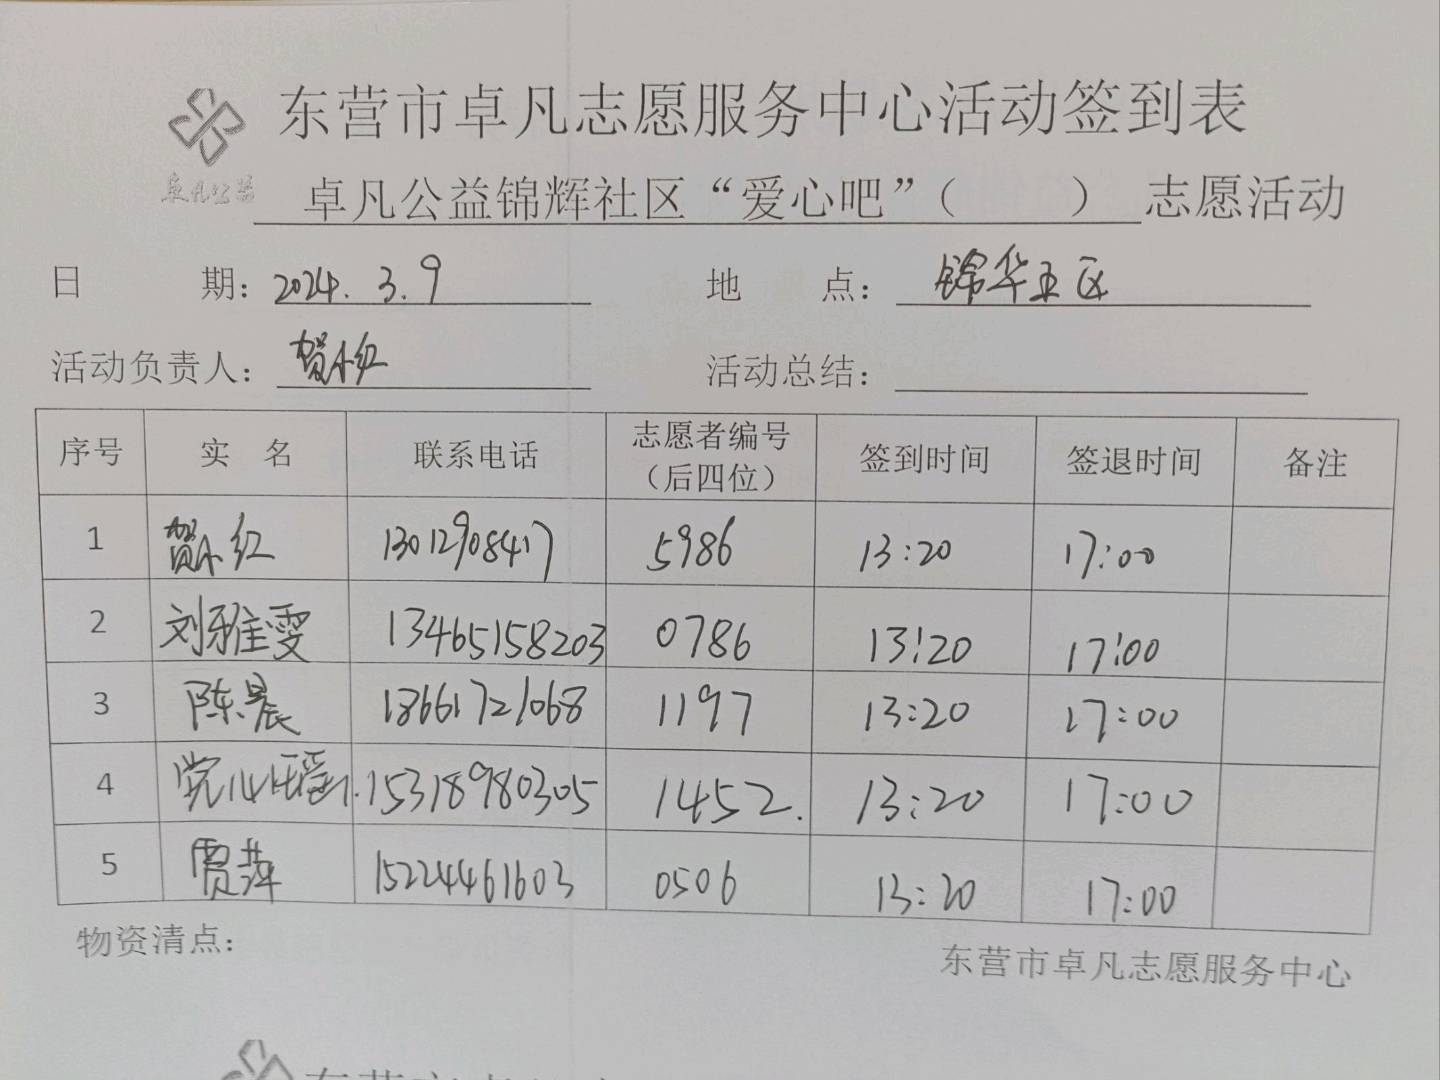 东营市卓凡志愿服务中心活动签到表
卓凡公益
卓凡公益锦辉社区“爱心吧”（　　）志愿活动
日　期：2024.3.9　地　点：锦华五区
活动负责人：贺小红　活动总结：
序号　实 名　联系电话　志愿者编号（后四位）　签到时间　签退时间　备注
1　贺小红　13012908417　5986　13:20　17:00
2　刘雅雯　13465158203　0786　13:20　17:00
3　陈晨　13661721068　1197　13:20　17:00
4　党心瑶　15318980305　1452.　13:20　17:00
5　贾萍　15224461603　0506　13:20　17:00
物资清点：
东营市卓凡志愿服务中心